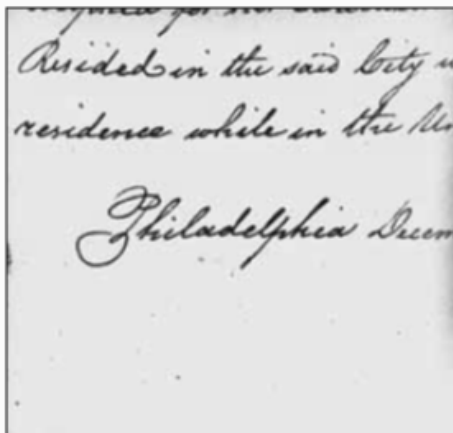 for her
Resided in the said City
residence while in the Un
Philadelphia Decem